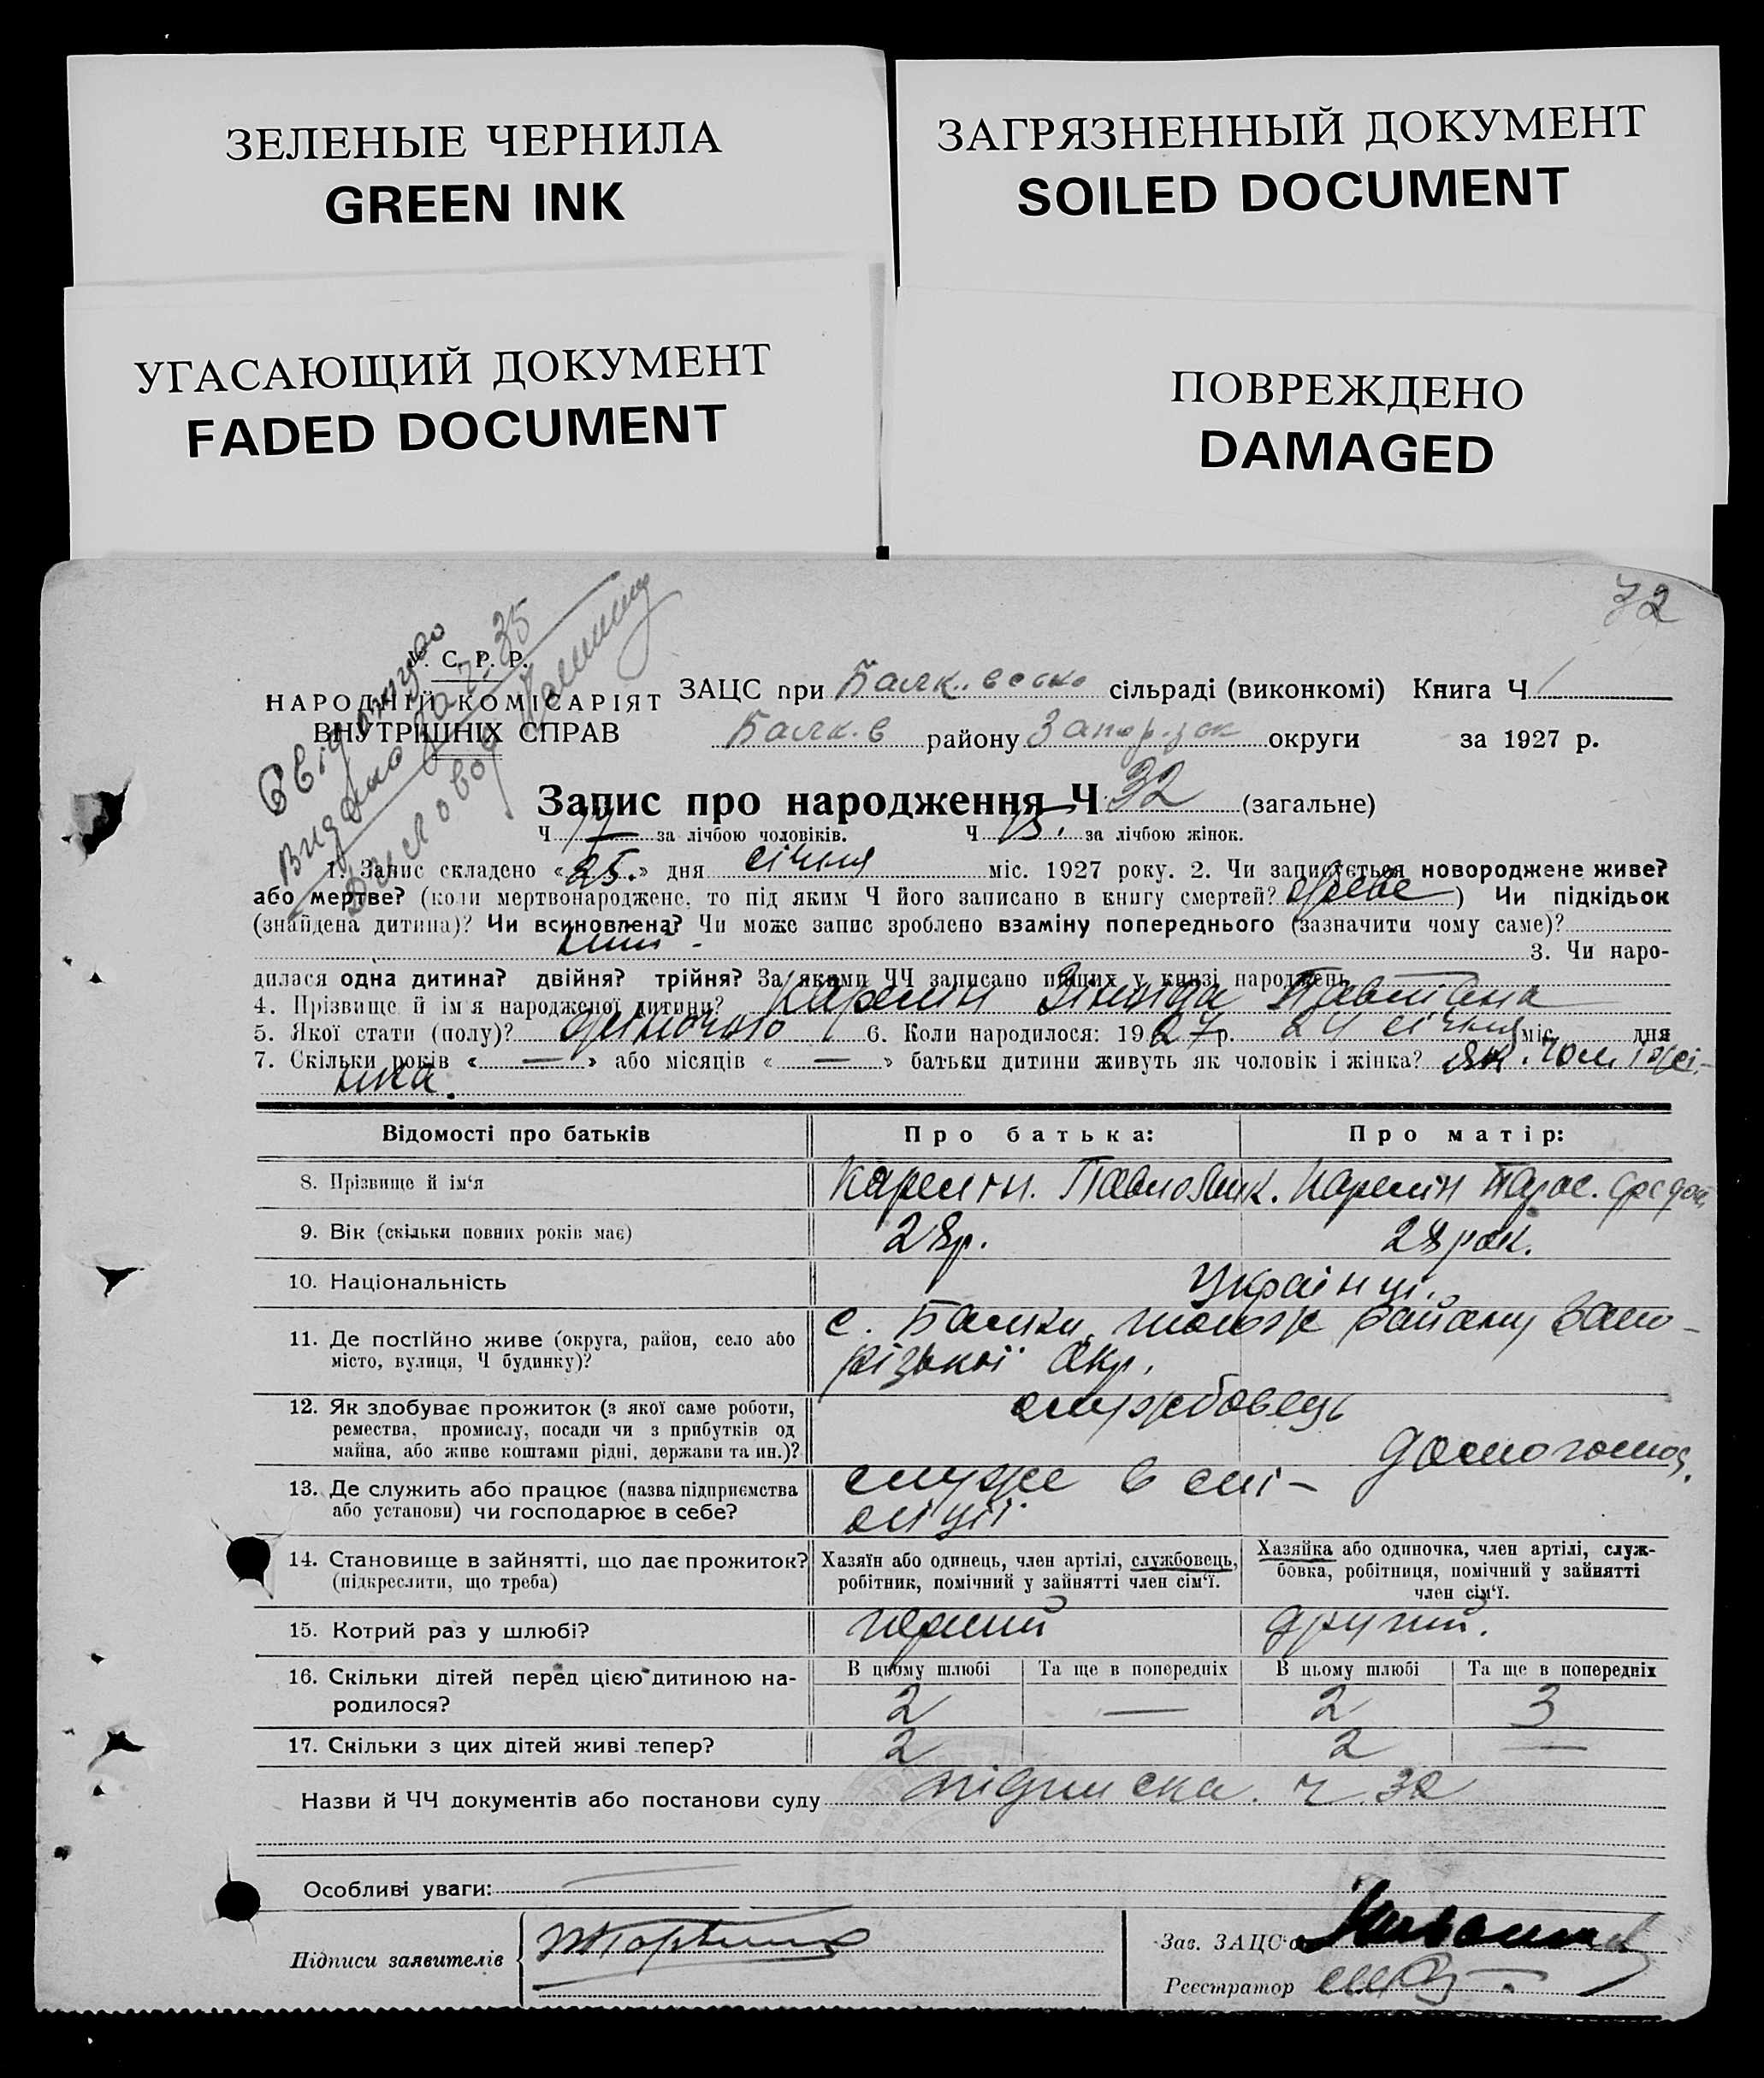 ЗЕЛЕНЫЕ ЧЕРНИЛА
GREEN INK
ЗАГРЯЗНЕННЫЙ ДОКУМЕНТ
SOILED DOCUMENT
УГАСАЮЩИЙ ДОКУМЕНТ
FADED DOCUMENT
ПОВРЕЖДЕНО
DAMAGED
32
У. С. Р. Р.
НАРОДНІЙ КОМІСАРІЯТ
ВНУТРІШНІХ СПРАВ
Видано за ч. 35
Діловод
ЗАЦС при сільраді (виконкомі) Книга Ч 1
району округи за 1927 р.
Запис про народження Ч 32 (загальне)
Ч 17 за лічбою чоловіків. Ч 15. за лічбою жінок.
1. Запис складено «25.» дня січня міс. 1927 року. 2. Чи записується новороджене живе?
або мертве? (коли мертвонароджене, то під яким Ч його записано в книгу смертей? живе) Чи підкідьок
(знайдена дитина)? Чи всиновлена? Чи може запис зроблено взаміну попереднього (зазначити чому саме)?
3. Чи наро-
дилася одна дитина? двійня? трійня? За якими ЧЧ записано инших у книзі народжень
4. Прізвище й ім'я народженої дитини? Карелін Зінаїда
5. Якої стати (полу)? жіночого 6. Коли народилося: 1927 р. 24 січня міс. дня
7. Скільки років « — » або місяців « — » батьки дитини живуть як чоловік і жінка? як чол і жі-
нка.
Відомості про батьків Про батька: Про матір:
8. Прізвище й ім'я Карелін. Карелін
9. Вік (скільки повних років має) 28 р. 28 рок.
10. Національність Українці.
11. Де постійно живе (округа, район, село або с. Балки, району Запо-
місто, вулиця, Ч будинку)? різької окр.
12. Як здобуває прожиток (з якої саме роботи, службовець
ремества, промислу, посади чи з прибутків од
майна, або живе коштами рідні, держави та ин.)? домогоспод.
13. Де служить або працює (назва підприємства служе в мі-
або установи) чи господарює в себе? ліції
14. Становище в зайнятті, що дає прожиток? Хазяїн або одинець, член артілі, службовець, Хазяйка або одиночка, член артілі, служ-
(підкреслити, що треба) робітник, помічний у зайнятті член сім'ї. бовка, робітниця, помічний у зайнятті
член сім'ї.
15. Котрий раз у шлюбі? перший другий.
16. Скільки дітей перед цією дитиною на- В цьому шлюбі Та ще в попередніх В цьому шлюбі Та ще в попередніх
родилося? 2 — 2 3
17. Скільки з цих дітей живі тепер? 2 2 —
Назви й ЧЧ документів або постанови суду підписка. ч. 32
Особливі уваги:
Підписи заявителів
Зав. ЗАЦС'ом
Реєстратор